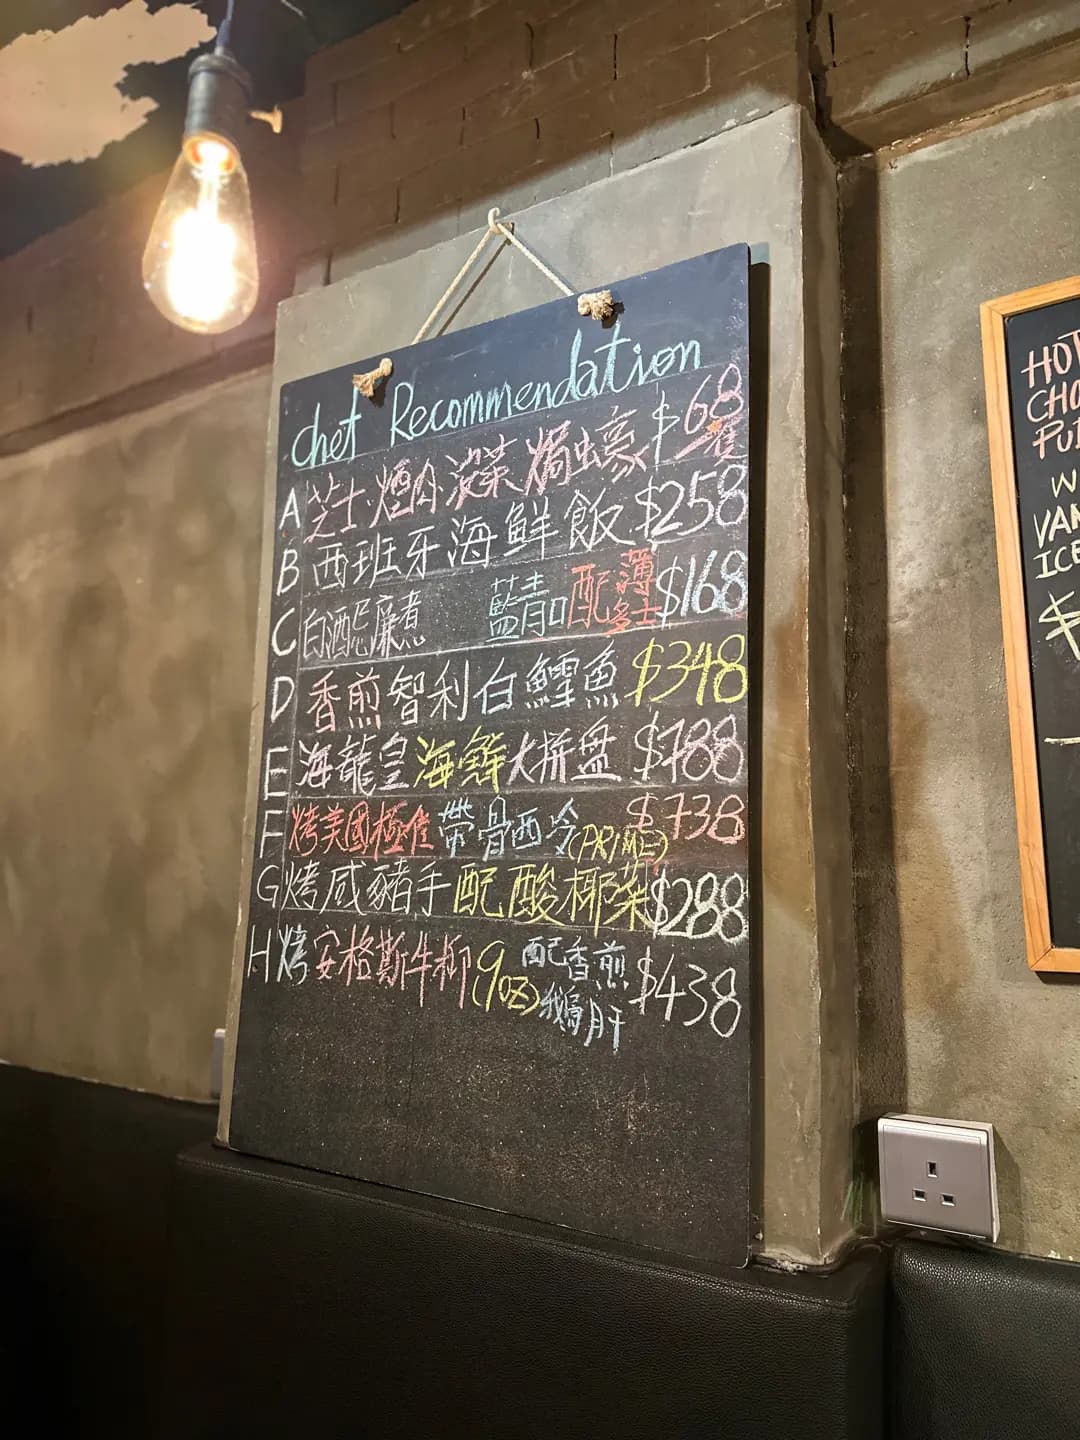 Chef Recommendation
A 芝士煙肉菠菜焗蠔 $68 隻
B 西班牙海鮮飯 $258
C 白酒忌廉煮 藍青口配薄多士 $168
D 香煎智利白鱈魚 $348
E 海龍皇海鮮大拼盘 $788
F 烤美國極佳帶骨西冷(PRIME) $738
G 烤咸豬手配酸椰菜 $288
H 烤安格斯牛柳(9oz)配香煎鵝肝 $438
HOT
CHO
PU
W
VAN
ICE
$